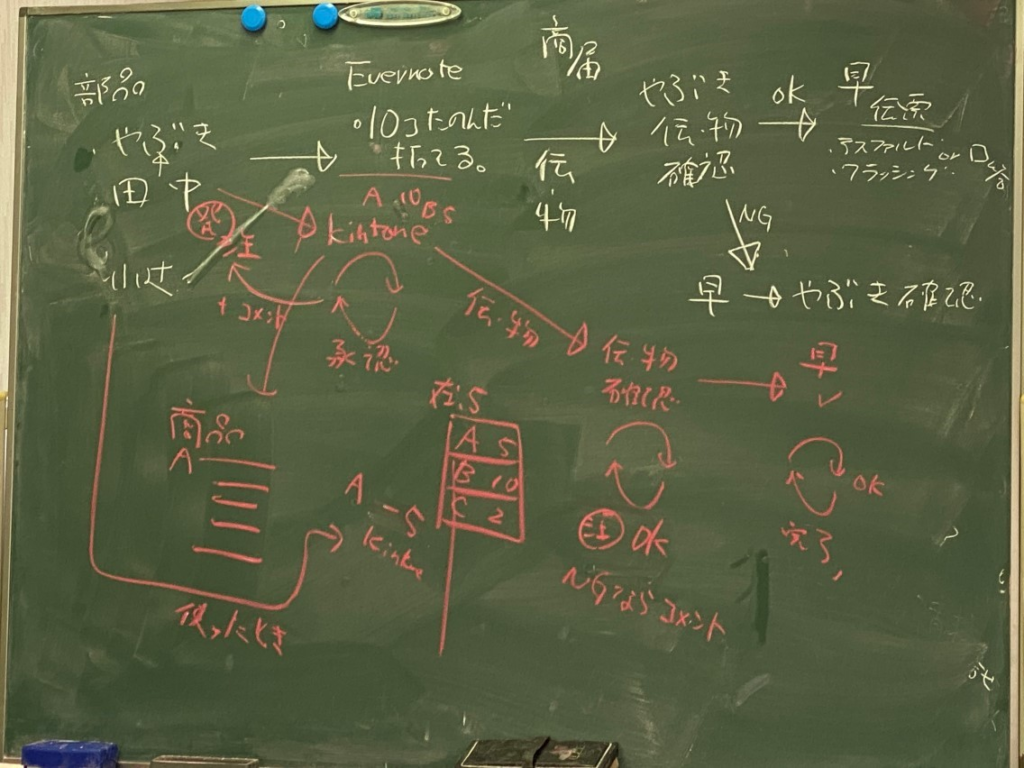 部品
やぶき
田中
Evernote
・10コたのんだ
打ってる。
商届
伝・物
やぶき
伝・物
確認
OK
早
伝票
・アスファルト or
・フラッシング
NG
早 → やぶき確認
A 10 B 5
kintone
発注
+コメント
承認
伝・物
伝・物
確認
早
✓
OK
NGならコメント
OK
完了
商品
A
在.5
A 5
B 10
C 2
A -5
kintone
使ったとき